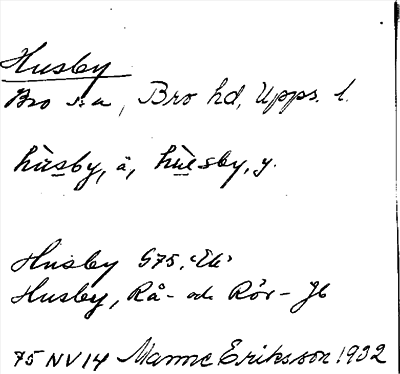 Husby
Bro sn, Bro hd, Upps. l.
hùsby, ä, hùesby, y.
Husby G75, "Ek"
Husby, Rå- och Rör- Jb
75 NV 14 Manne Eriksson 1932